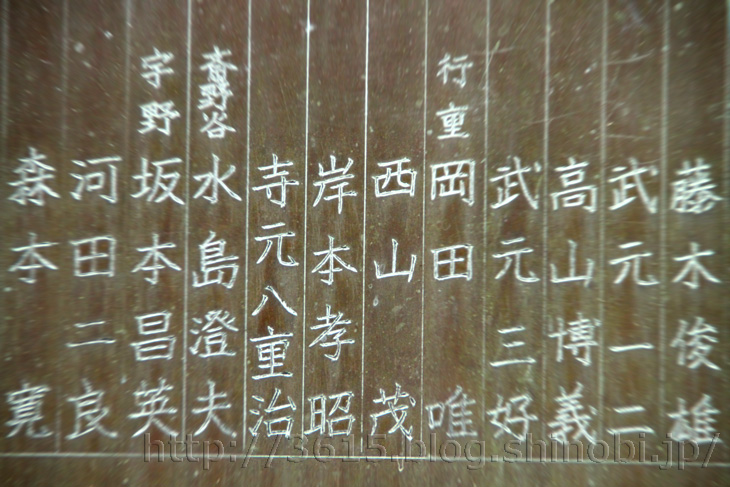 藤木俊雄
武元一二
高山博義
武元三好
行重
岡田唯
西山茂
岸本孝昭
寺元八重治
水島澄夫
宇野
坂本昌英
河田二良
森本寛
http://3615.blog.shinobi.jp/